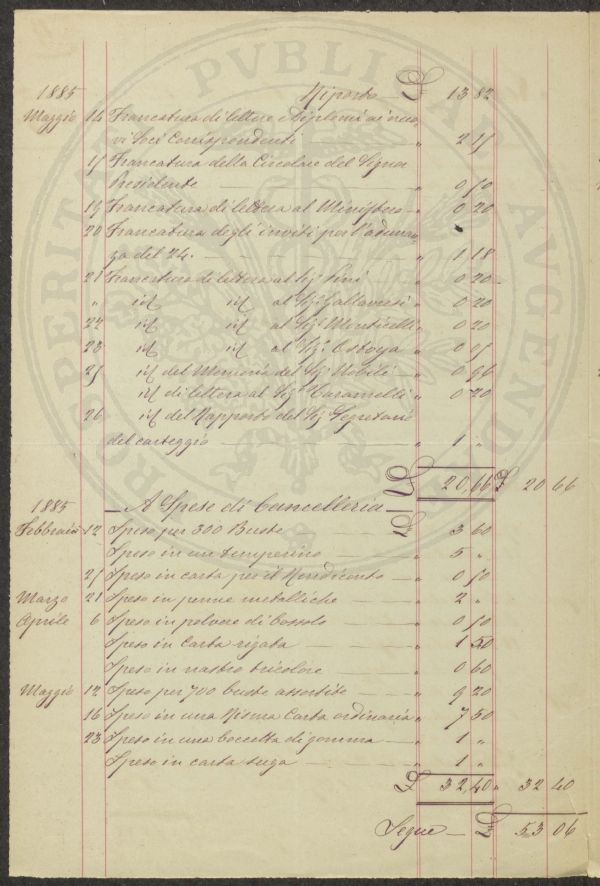 PROSPERITATI PVBLICAE AVGENDAE
1885 Riporto £ 13 82
Maggio 14 Francatura di lettere e diplomi ai nuo-
vi Soci Corrispondenti — " 2 15
15 Francatura della Circolare del Signor
Presidente — " 0 50
19 Francatura di lettera al Ministero — " 0 20
20 Francatura degli inviti per l'adunan-
za del 24. — " 1 18
21 Francatura di lettera al Sig. Pini — " 0 20
" id id al Sig. Gallavresi " 0 20
22 id id al Sig. Monticelli " 0 20
23 id id al Sig. " 0 05
25 id del Memoria del Sig. Nobili — " 0 96
id di lettera al Sig. Caramelli " 0 20
26 id del Rapporto del Sig. Segretario
del carteggio — " 1 "
£ 20,66 £ 20 66
1885 — A Spese di Cancelleria — £
Febbraio 12 Spese per 300 Buste — " 3 60
Speso in un temperino — " 5 "
25 Speso in carta per il Rendiconto — " 0 50
Marzo 21 Speso in penne metalliche — " 2 "
Aprile 6 Speso in polvere di bossolo " 0 50
Speso in Carta rigata — " 1 50
Speso in nastro tricolore " 0 60
Maggio 12 Speso per 700 buste assortite — " 9 20
16 Speso in una Risma Carta ordinaria " 7 50
23 Speso in una boccetta di gomma — " 1 "
Speso in carta suga — " 1 "
£ 32,40 " 32 40
Segue — £ 53 06